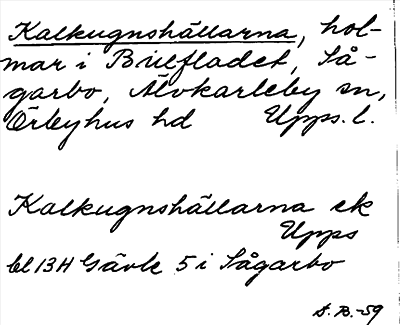 Kalkugnshällarna, hol-
mar i Bulfladet, Så-
garbo, Älvkarleby sn,
Örbyhus hd Upps. l.
Kalkugnshällarna ek
Upps
bl 13H Gävle 5 i Sågarbo
S. B. -59